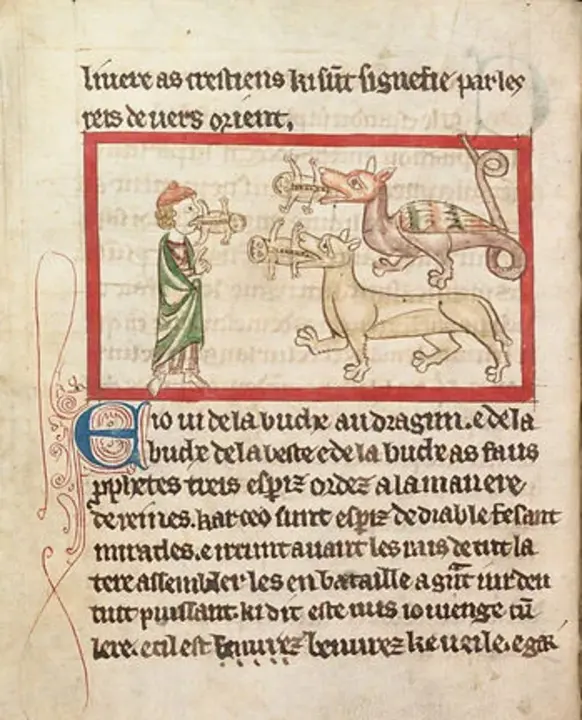 livere as crestiens ki sũt signefie par les
reis de vers orient.
E io vi de la buche au dragun. e de la
buche de la beste e de la buche as faus
prophetes treis espiz ordez a la manere
de reines. kar ceo sunt espiz de diable fesant
miracles. e irrunt avant les rais de tut la
tere assembler les en bataille a gñt iur deu
tut puissant. ki dit este vus io vienge cũ
lere. e cil est benurez ke veile. e gar